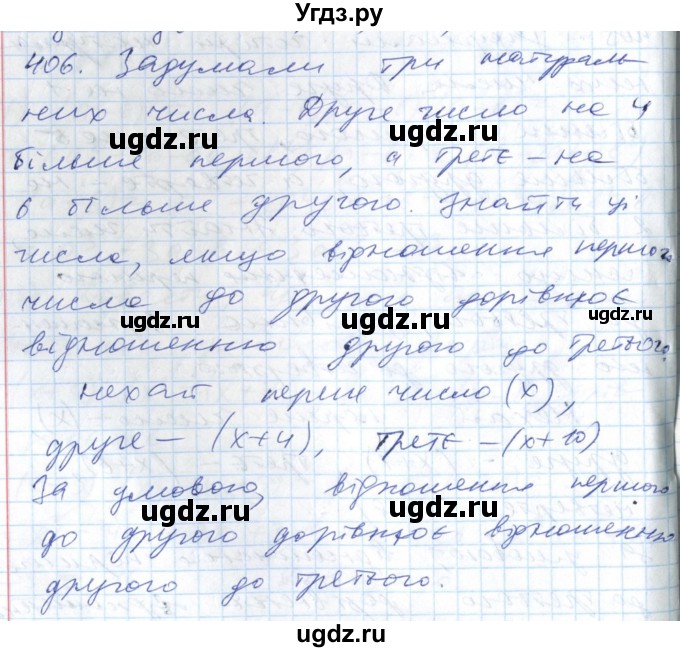 Угдз.ру
406. Задумали три натураль
них числа. Друге число на 4
ugdz.ru ugdz.ru
більше першого, а третє – на
6 більше другого. Знайти ці
ugdz.ru ugdz.ru
числа, якщо відношення першого
числа до другого дорівнює
ugdz.ru ugdz.ru ugdz.ru
відношенню другого до третього.
нехай перше число (x),
ugdz.ru ugdz.ru
друге – (x+4), третє – (x+10)
За умовою, відношення першого
ugdz.ru ugdz.ru
до другого дорівнює відношенню
другого до третього.
ugdz.ru
ugdz.ru